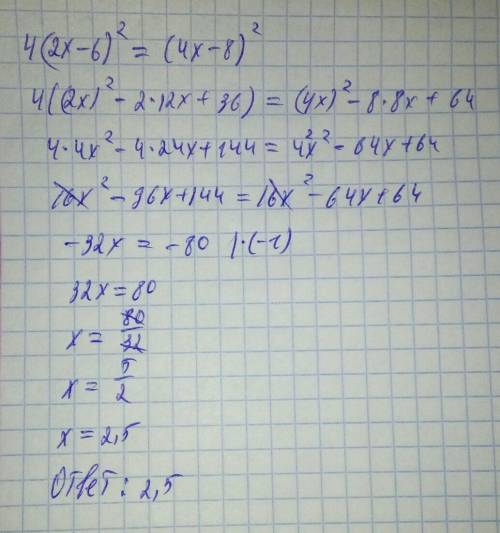 4(2x-6)² = (4x-8)²
4((2x)² - 2·12x + 36) = (4x)² - 8·8x + 64
4·4x² - 4·24x + 144 = 4²x² - 64x + 64
16x² - 96x + 144 = 16x² - 64x + 64
-32x = -80 |·(-1)
32x = 80
x = 80/32
x = 5/2
x = 2,5
Ответ: 2,5